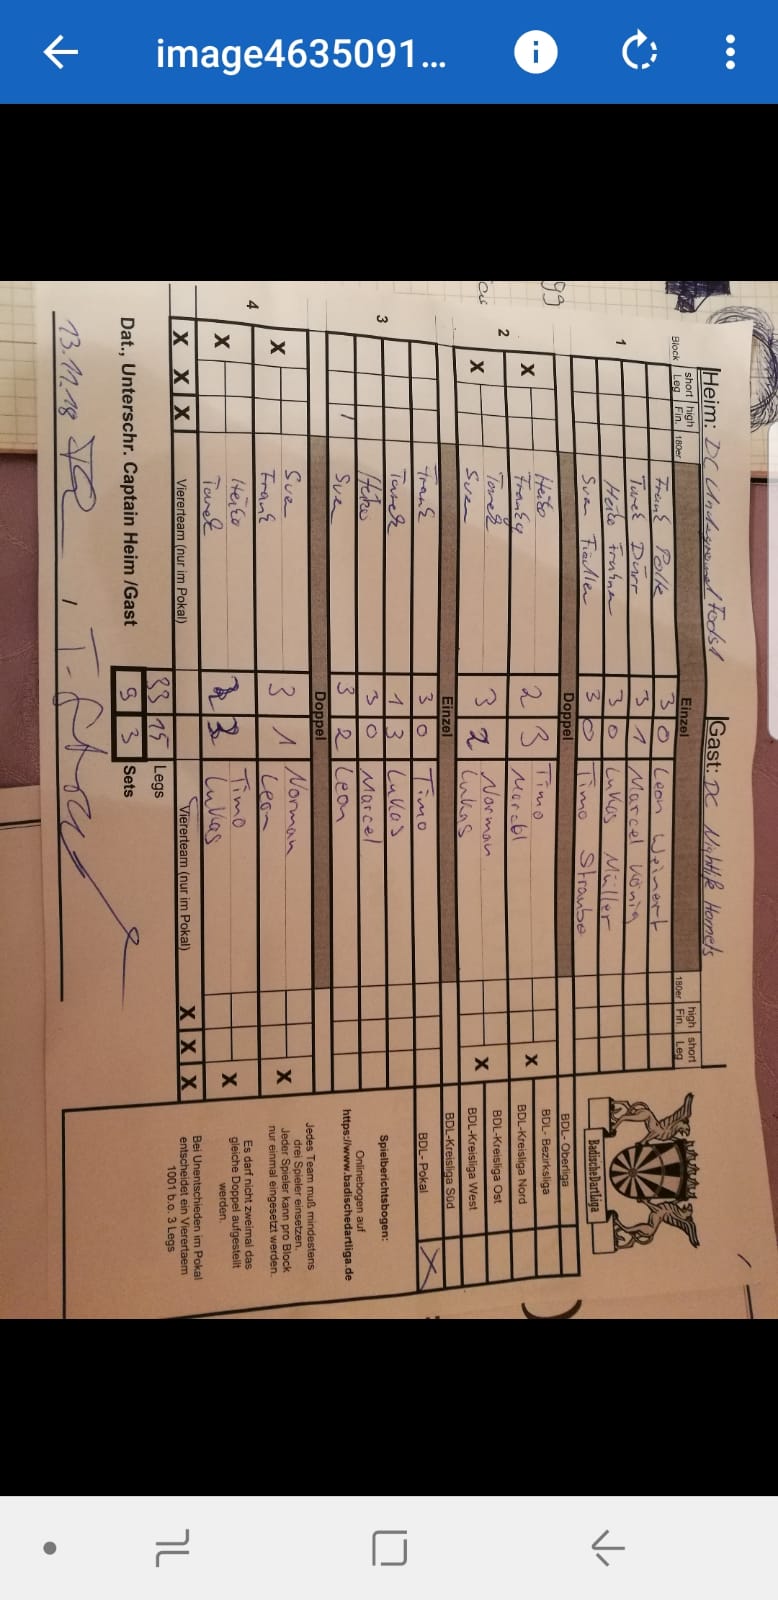 image4635091...
Heim: DC Underground Gast: DC Nightlife Hornets
Block short Leg high Fin. 180er Einzel 180er high Fin. short Leg
Frank Polle 3 0 Leon Weinert
Tarek Dürr 3 1 Marcel König
1 Heiko 3 0 Lukas Müller
Sven Fiedler 3 0 Timo Straube
Doppel
99
Heiko Timo
X Frank 2 3 Marcel X
2
Tarek Norman
X Sven 3 2 Lukas X
Einzel
Frank 3 0 Timo
Tarek 1 3 Lukas
3 Heiko 3 0 Marcel
Sven 3 2 Leon
Doppel
Sven Norman
X Frank 3 1 Leon X
4
Heiko Timo
X Tarek Lukas X
X X X Viererteam (nur im Pokal) Viererteam (nur im Pokal) X X X
33 15 Legs
Dat., Unterschr. Captain Heim /Gast 9 3 Sets
13.11.18
BadischeDartliga
BDL- Oberliga
BDL- Bezirksliga
BDL-Kreisliga Nord
BDL-Kreisliga Ost
BDL-Kreisliga West
BDL-Kreisliga Süd
BDL- Pokal X
Spielberichtsbogen:
Onlinebogen auf
https://www.badischedartliga.de
Jedes Team muß mindestens
drei Spieler einsetzen.
Jeder Spieler kann pro Block
nur einmal eingesetzt werden.
Es darf nicht zweimal das
gleiche Doppel aufgestellt
werden.
Bei Unentschieden im Pokal
entscheidet ein Vierertaem
1001 b.o. 3 Legs